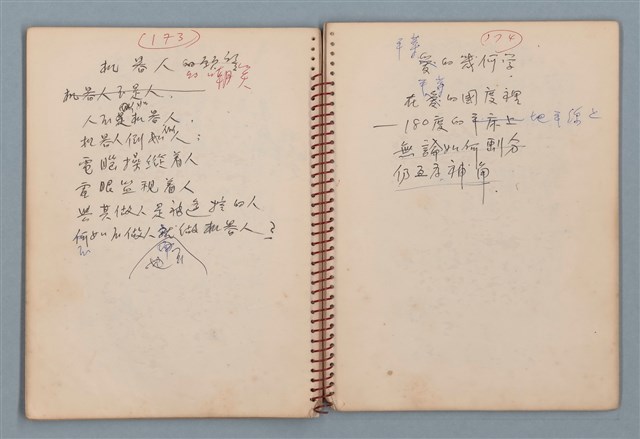 (173)
机器人的
的嘲笑
机器人不是人.
人不是机器人.
机器人倒如人;
電腦操縱着人
电眼監視着人
與其做人是被遙控的人
何如不做人就做机器人?
(174)
愛的幾何学.
在愛的國度裡
—180度的平床上 地平線上
無論如何劃分
仍互為補角.